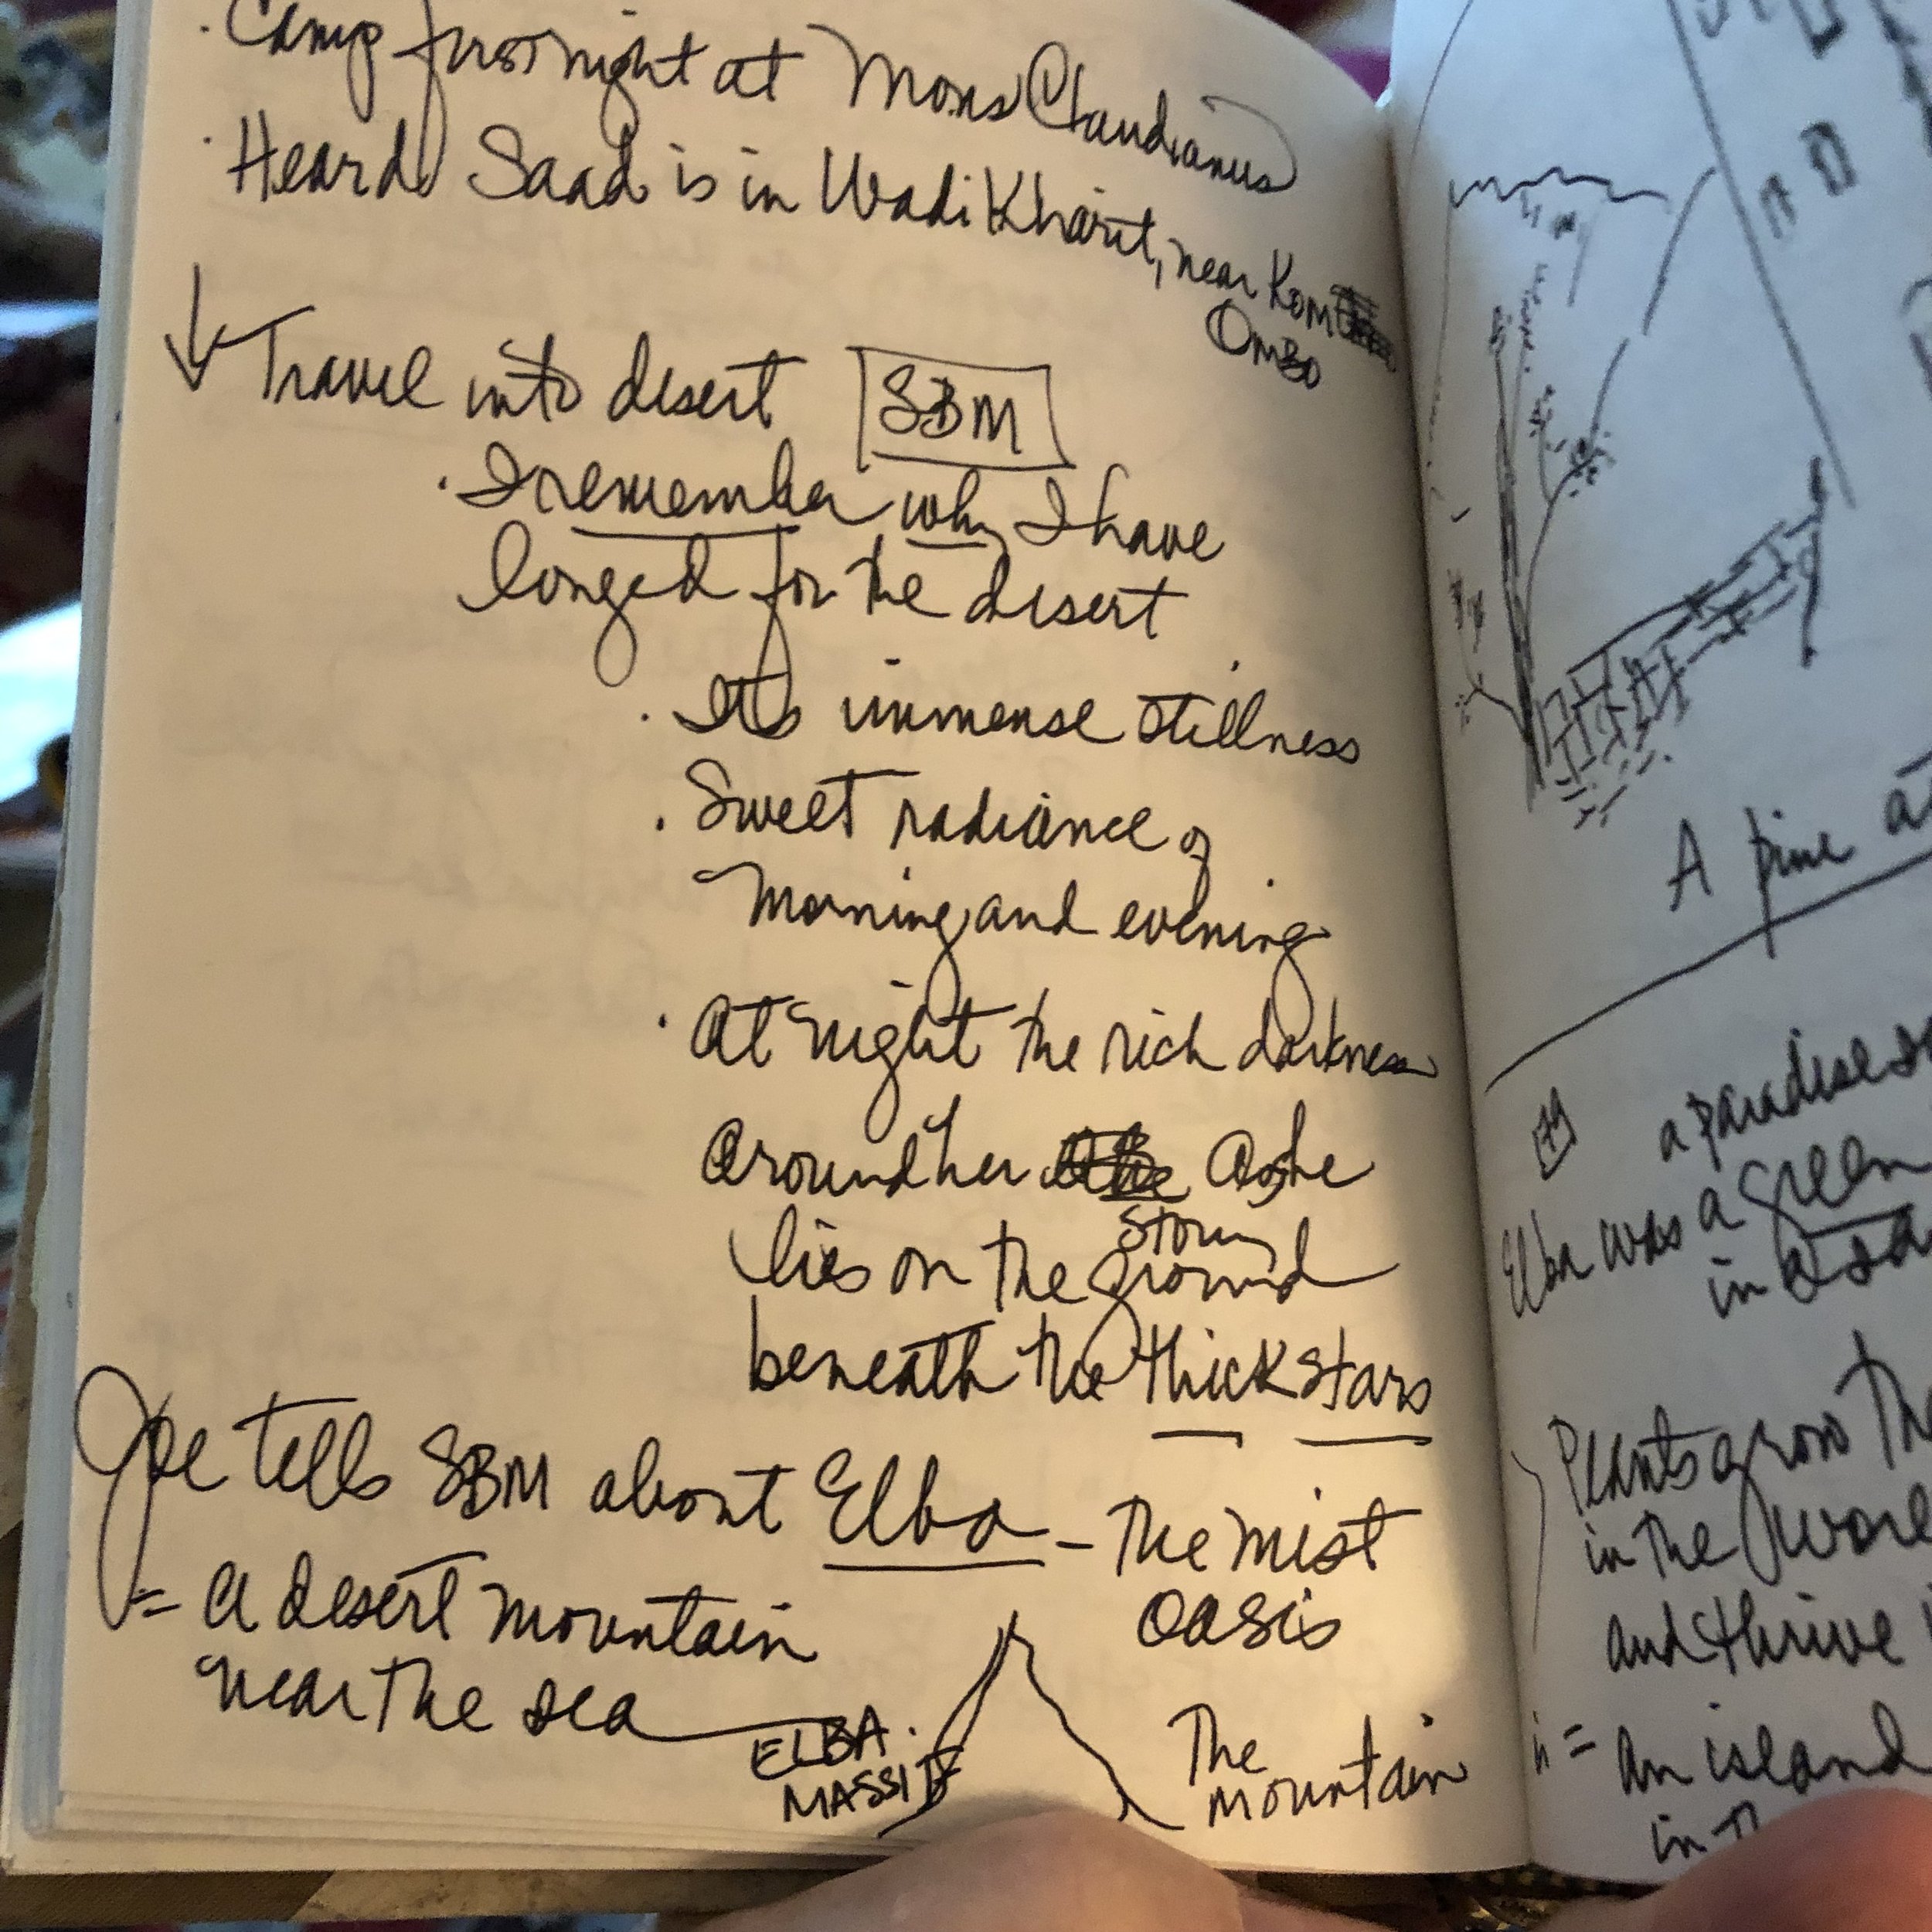 · Camp first night at Mons Claudianus
· Heard Saad is in Wadi Kharit, near Kom
Ombo
↓ Travel into desert SBM
· I remember why I have
longed for the desert
· Its immense stillness
· Sweet radiance of
morning and evening
· At night the rich darkness
around her as she
stony
lies on the ground
beneath the thick stars
Joe tells SBM about Elba – The mist
oasis
= a desert mountain
near the sea
ELBA
MASSIF
The
mountain
A pine
a paradise
Elba was a green
in a
Plants grow
in the
and thrive
= an island
in